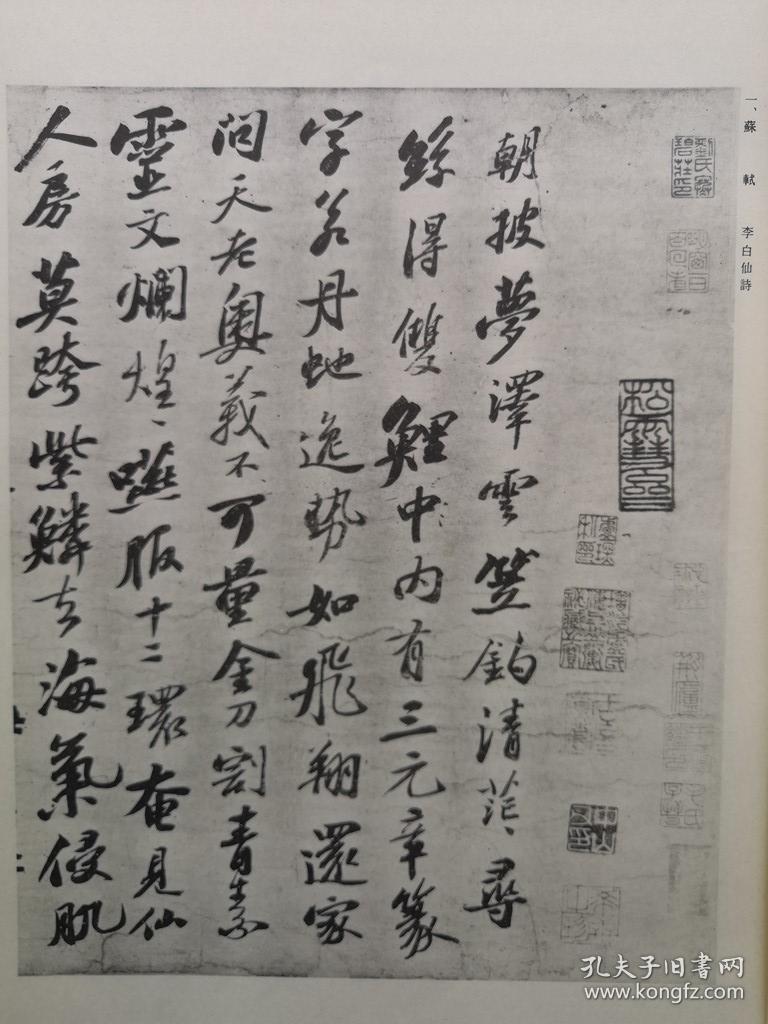 一、蘇　軾　李白仙詩
朝披夢澤雲笠釣清茫、尋
絲得雙鯉中內有三元章篆
字若丹虵逸勢如飛翔還家
問天老奧義不可量金刀割青素
靈文爛煌、嚥服十二環奄見仙
人房莫跨紫鱗去海氣侵肌
孔夫子旧書网
www.kongfz.com